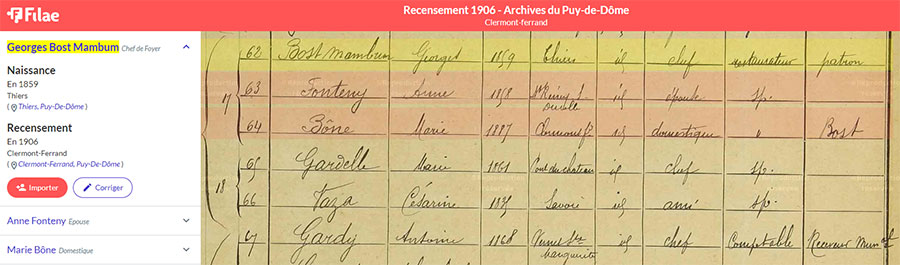 Filae
Recensement 1906 - Archives du Puy-de-Dôme
Clermont-ferrand
Georges Bost Mambum Chef de Foyer
Naissance
En 1859
Thiers
( Thiers, Puy-De-Dôme )
Recensement
En 1906
Clermont-Ferrand
( Clermont-Ferrand, Puy-De-Dôme )
Importer Corriger
Anne Fonteny Épouse
Marie Bône Domestique
62 Bost Mambrun Georges 1859 Thiers id chef restaurateur patron
17 63 Fonteny Anne 1858 id épouse sp.
64 Bône Marie 1887 id domestique " Bost
65 Gardelle Marie 1861 Pont du chateau id chef sp.
18 66 Vaza Césarine 1835 Savoie id amie sp.
67 Gardy Antoine 1868 id chef Comptable Receveur